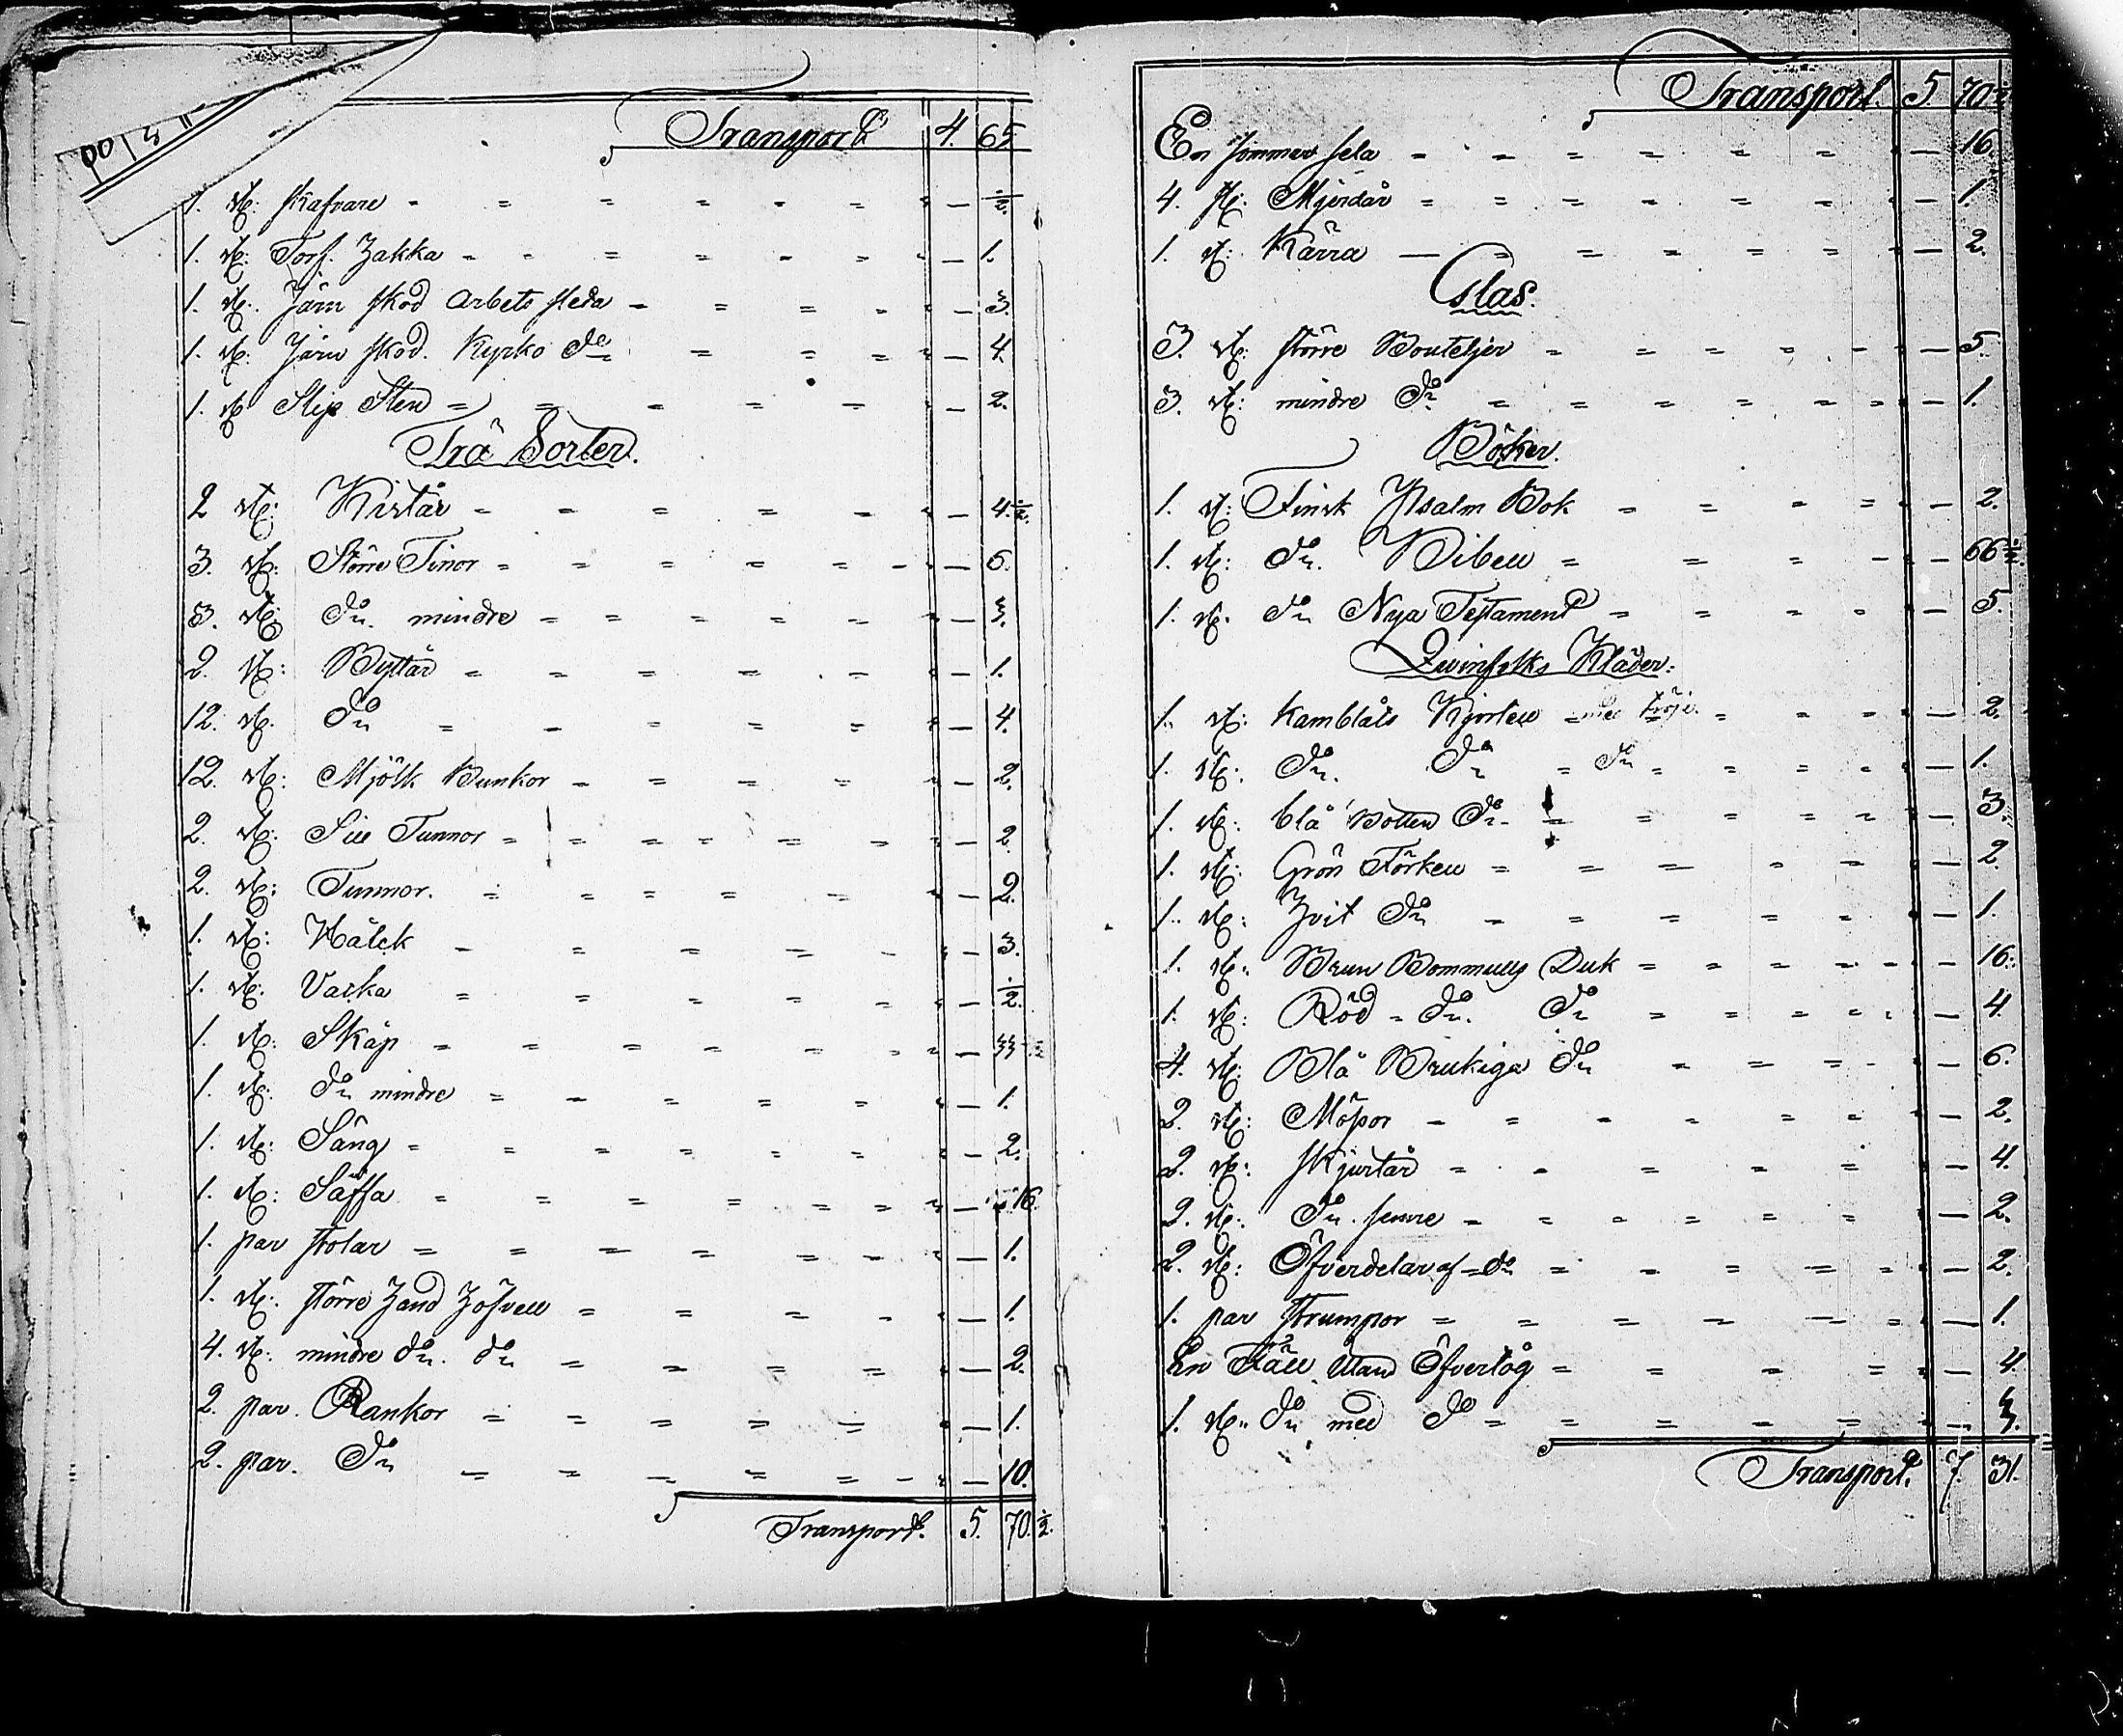 Transport 4. 65.
1. st: skafvare - ½.
1. st: Torf. Hakka - 1.
1. st: Järn skod Arbets sleda - 3.
1. st: Järn skod. Kyrko do - 4.
1. st Slip Sten - 2.
Trä Sorter.
2 st: Kistår - 4.½.
3. st: Större Tinor - 6.
3. st: do mindre - 3.
2. st: Byttår - 1.
12. st: do - 4.
12. st: Mjölk Bunkor - 2.
2. st: Sill Tunnor - 2.
2. st: Tunnor. - 2.
1. st: Kälck - 3.
1. st: Vacka - ½.
1. st: Skåp - 33
1. st: do mindre - 1.
1. st: Säng - 2.
1. st: Säffa - 16.
1. par stolar - 1.
1. st: större Hand Höfvell - 1.
4. st: mindre do. do - 2.
2. par. Rankor - 1.
2. par. do - 10.
Transport. 5. 70.½.
Transport. 5 70½
En sommar sela - 16.
4. st: Mjerdår - 1.
1. st: Kärra - 2.
Glas.
3. st: större Bouteljer - 5.
3. st: mindre do - 1.
Böker.
1. st: Finsk Psalm Bok - 2.
1. st: do. Bibell - 66½.
1. st: do Nya Testament - 5.
Qvinfolks Kläder.
1. st: Kamblåts Kjortell med tröje - 2.
1. st: do. do do - 1.
1. st: blå Botten do - 3.
1. st: Grön Förkell - 2.
1. st: Hvit do - 1.
1. st: Brun Bommulls Duk - 16.
1. st: Röd do. do - 4.
4. st: Blå Brukiga do - 6.
2. st: Mössor - 2.
2. st: Skjortår - 4.
2. st: do. semre - 2.
2. st: Öfverdelar af do - 2.
1. par strumpor - 1.
En Fäll utan Öfvertög - 4.
1. st: do med do - 3.
Transport. 7. 31.